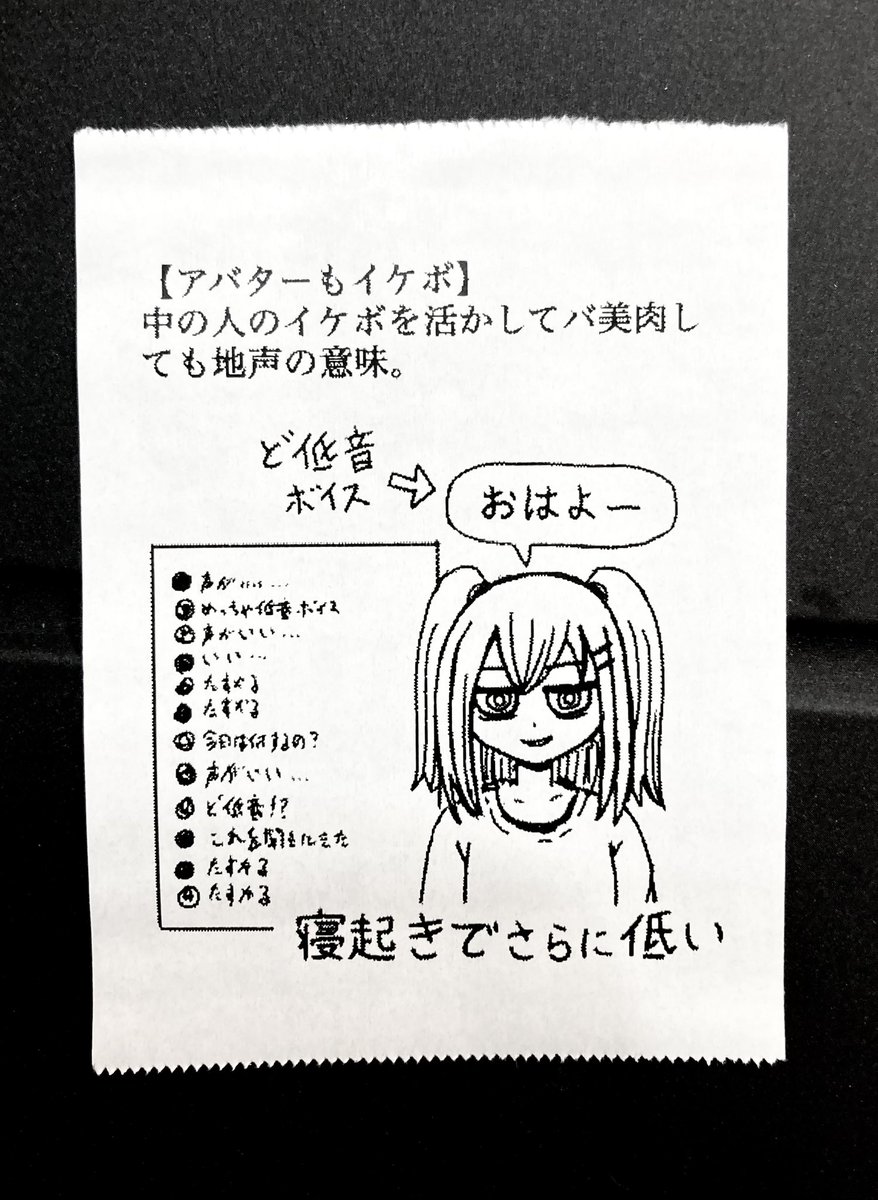 【アバターもイケボ】
中の人のイケボを活かしてバ美肉し
ても地声の意味。
ど低音
ボイス
おはよー
声がいい…
めっちゃ低音ボイス
声がいい…
いい…
たすかる
たすかる
今日は何するの?
声がいい…
ど低音!?
これを聞きにきた
たすかる
たすかる
寝起きでさらに低い